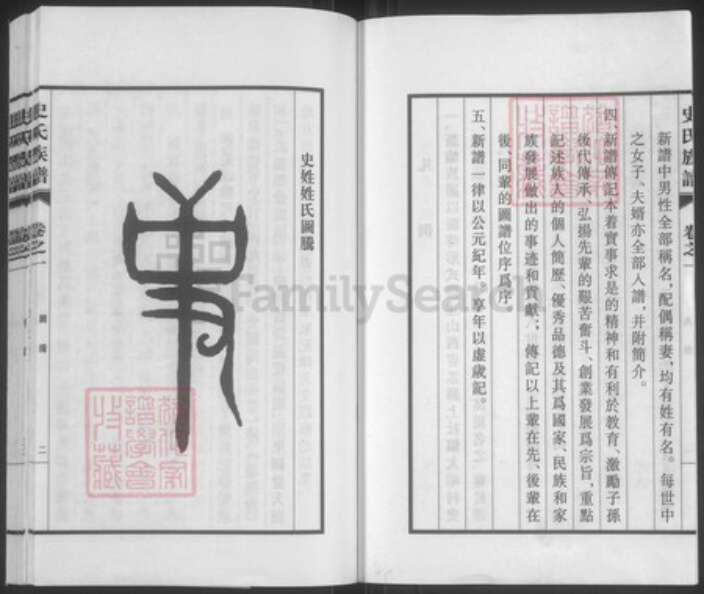 史氏族譜
卷之一
新譜中男性全部稱名，配偶稱妻，均有姓有名。每世中
之女子、夫婿亦全部人譜，并附簡介。
四、新譜傳記本着實事求是的精神和有利於教育、激勵子孫
後代傳承、弘揚先輩的艱苦奮斗、創業發展爲宗旨，重點
記述族人的個人簡歷、優秀品德及其爲國家、民族和家
族發展做出的事迹和貢獻；傳記以上輩在先、後輩在
後，同輩的圖譜位序爲序
五、新譜一律以公元紀年。享年以虛歲記。
史姓姓氏圖騰
史氏族譜
卷之一
二
FamilySearch